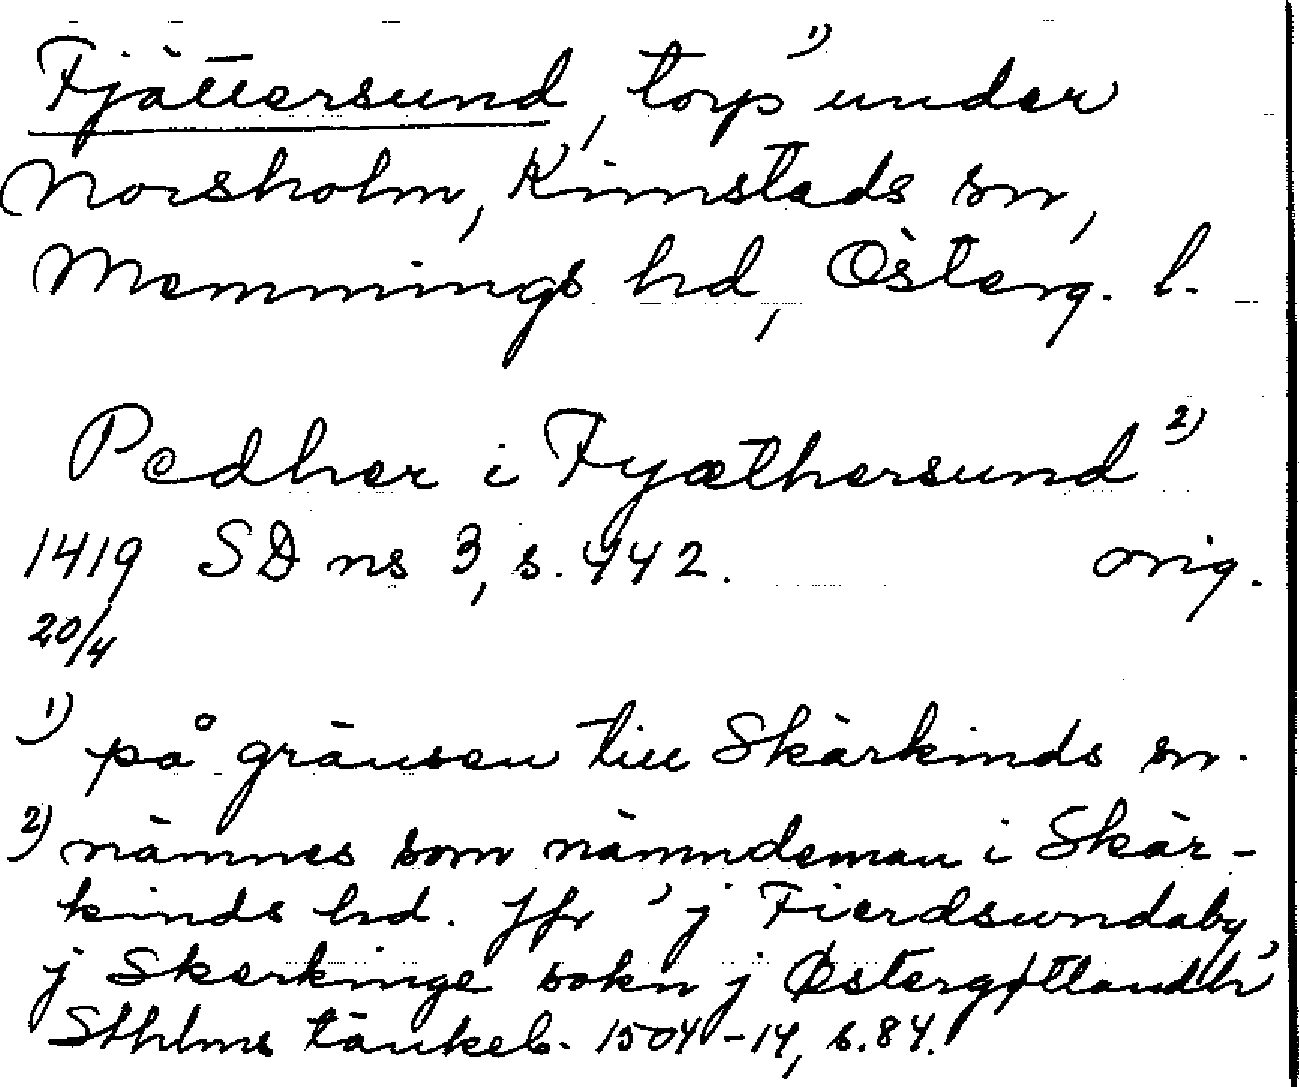 Fjättersund, torp¹⁾ under
Norsholm, Kimstads sn,
Memmings hd, Österg. l.
Pedher i Fyæthersund²⁾
1419 SD ns 3, s. 442. orig.
20/4
1) på gränsen till Skärkinds sn.
2) nämnes som nämndeman i Skär-
kinds hd. Jfr 'j Fierdsundaby
j Skerkinge sokn j Østergøtlandh'
Sthlms tänkeb. 1504-14, s. 84.